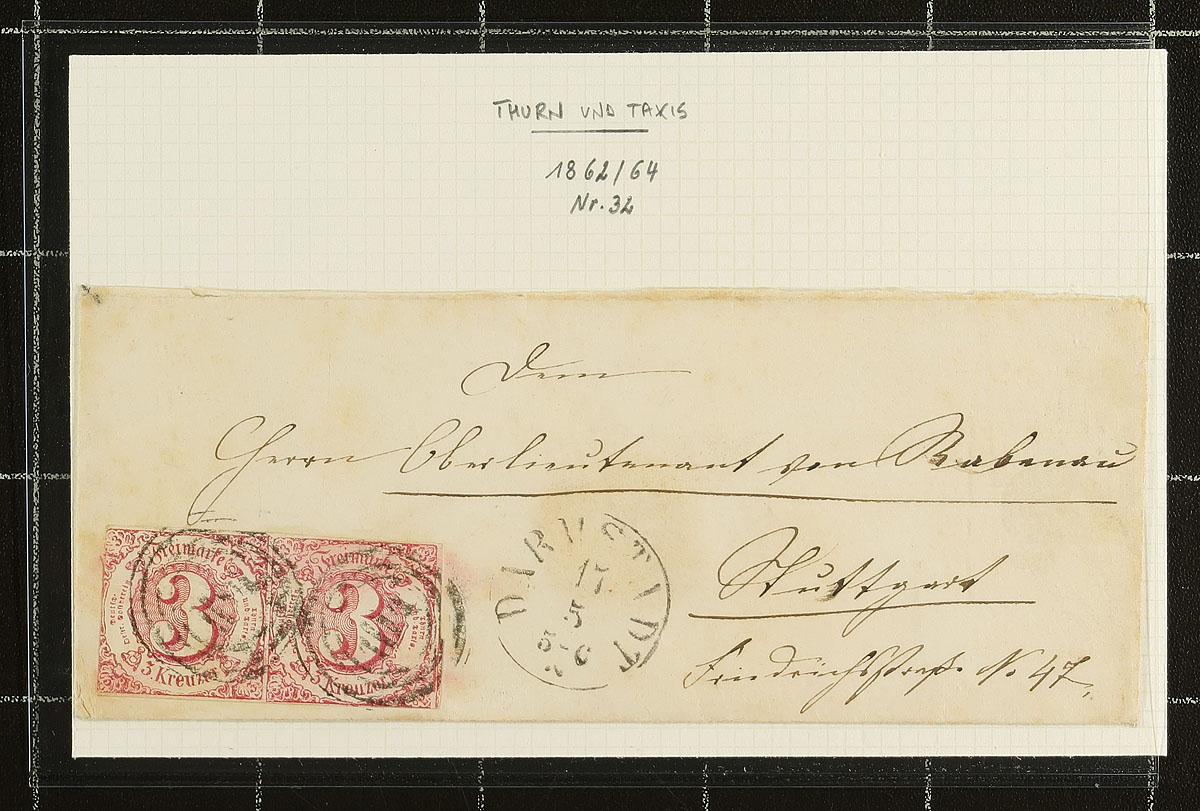 THURN UND TAXIS
1862/64
Nr. 32
Dem
Herrn Oberlieutenant von Rabenau
Stuttgart
Friedrichsstraße No 47.
Freimarke
3
3 Kreuzer
Freimarke
3
3 Kreuzer
DARMSTADT
17
5